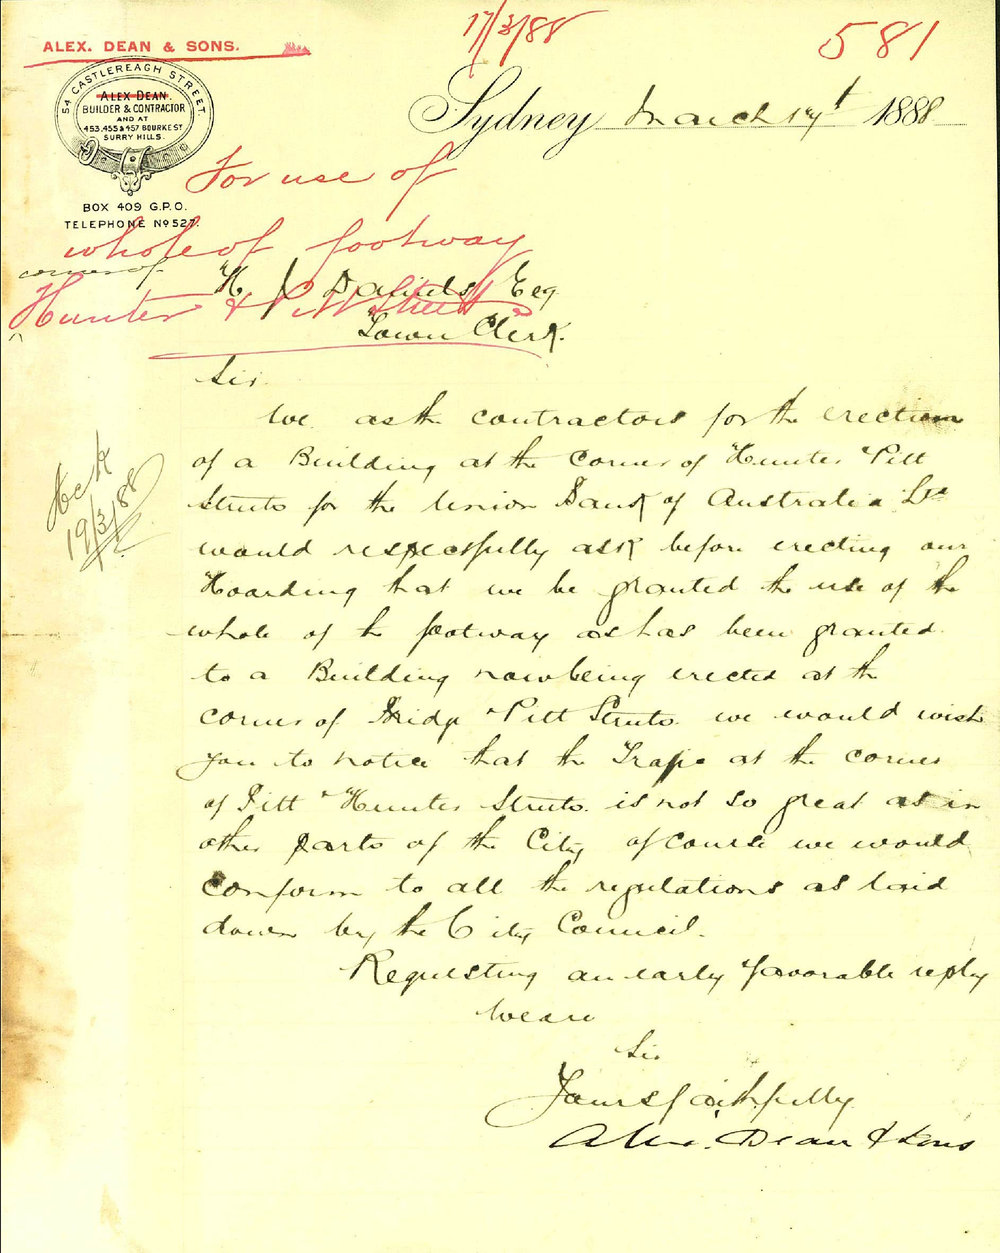 17/3/88
581
ALEX. DEAN & SONS.
54 CASTLEREAGH STREET.
ALEX DEAN.
BUILDER & CONTRACTOR
AND AT
453,455 & 457 BOURKE ST
SURRY HILLS.
BOX 409 G.P.O.
TELEPHONE No 527.
Sydney March 17t 1888
For use of
whole of footway
corner of
Hunter & Pitt Streets
H. Daniels Esq
Town Clerk.
Sir.
We as the contractors for the erection
of a Building at the corner of Hunter & Pitt
Streets for the Union Bank of Australia Ltd
would respectfully ask before erecting our
Hoarding that we be granted the use of the
whole of the footway as has been granted
to a Building now being erected at the
corner of Bridge & Pitt Streets. we would wish
you to notice that the Traffic at the corner
of Pitt & Hunter Streets. is not so great as in
other parts of the City of course we would
conform to all the regulations as laid
down by the City Council.
Requesting an early favorable reply
We are
Sir
Yours faithfully
Alex. Dean & Sons
19/3/88